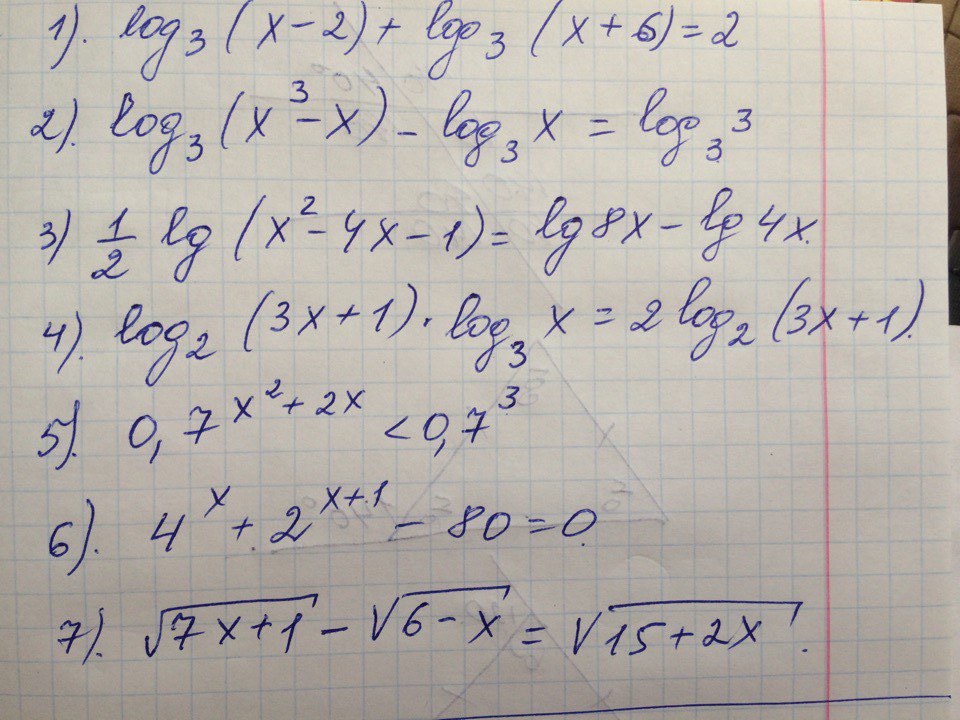 1). log₃(x-2)+ log₃(x+6)=2
2). log₃(x³-x)-log₃x = log₃3
3) 1/2 lg(x²-4x-1)= lg8x-lg4x.
4). log₂(3x+1)·log₃x=2log₂(3x+1).
5). 0,7^(x²+2x) <0,7³
6). 4^x+2^(x+1)-80=0.
7). √(7x+1)-√(6-x)=√(15+2x).